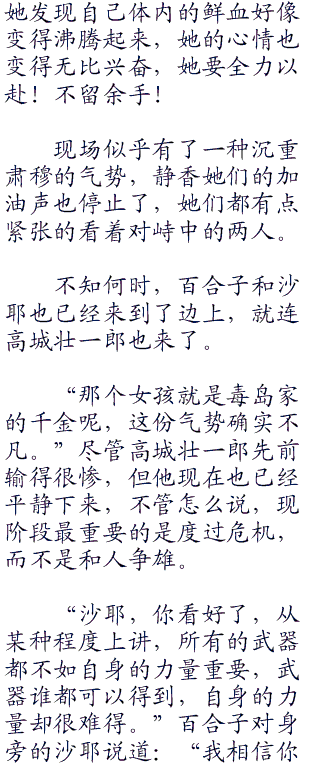 她发现自己体内的鲜血好像
变得沸腾起来，她的心情也
变得无比兴奋，她要全力以
赴！不留余手！
现场似乎有了一种沉重
肃穆的气势，静香她们的加
油声也停止了，她们都有点
紧张的看着对峙中的两人。
不知何时，百合子和沙
耶也已经来到了边上，就连
高城壮一郎也来了。
“那个女孩就是毒岛家
的千金呢，这份气势确实不
凡。”尽管高城壮一郎先前
输得很惨，但他现在也已经
平静下来，不管怎么说，现
阶段最重要的是度过危机，
而不是和人争雄。
“沙耶，你看好了，从
某种程度上讲，所有的武器
都不如自身的力量重要，武
器谁都可以得到，自身的力
量却很难得。”百合子对身
旁的沙耶说道：“我相信你